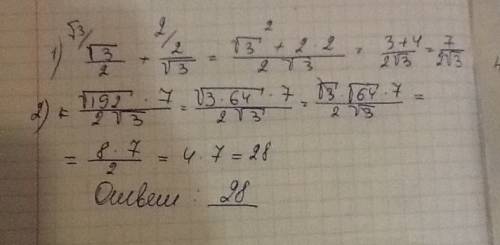 1) √3/ √3/2 + 2/ 2/√3 = (√3² + 2·2)/(2√3) = (3+4)/(2√3) = 7/(2√3)
2) (√192 · 7)/(2√3) = (√3·64 · 7)/(2√3) = (√3 · √64 · 7)/(2√3) =
= (8 · 7)/2 = 4 · 7 = 28
Ответ : 28